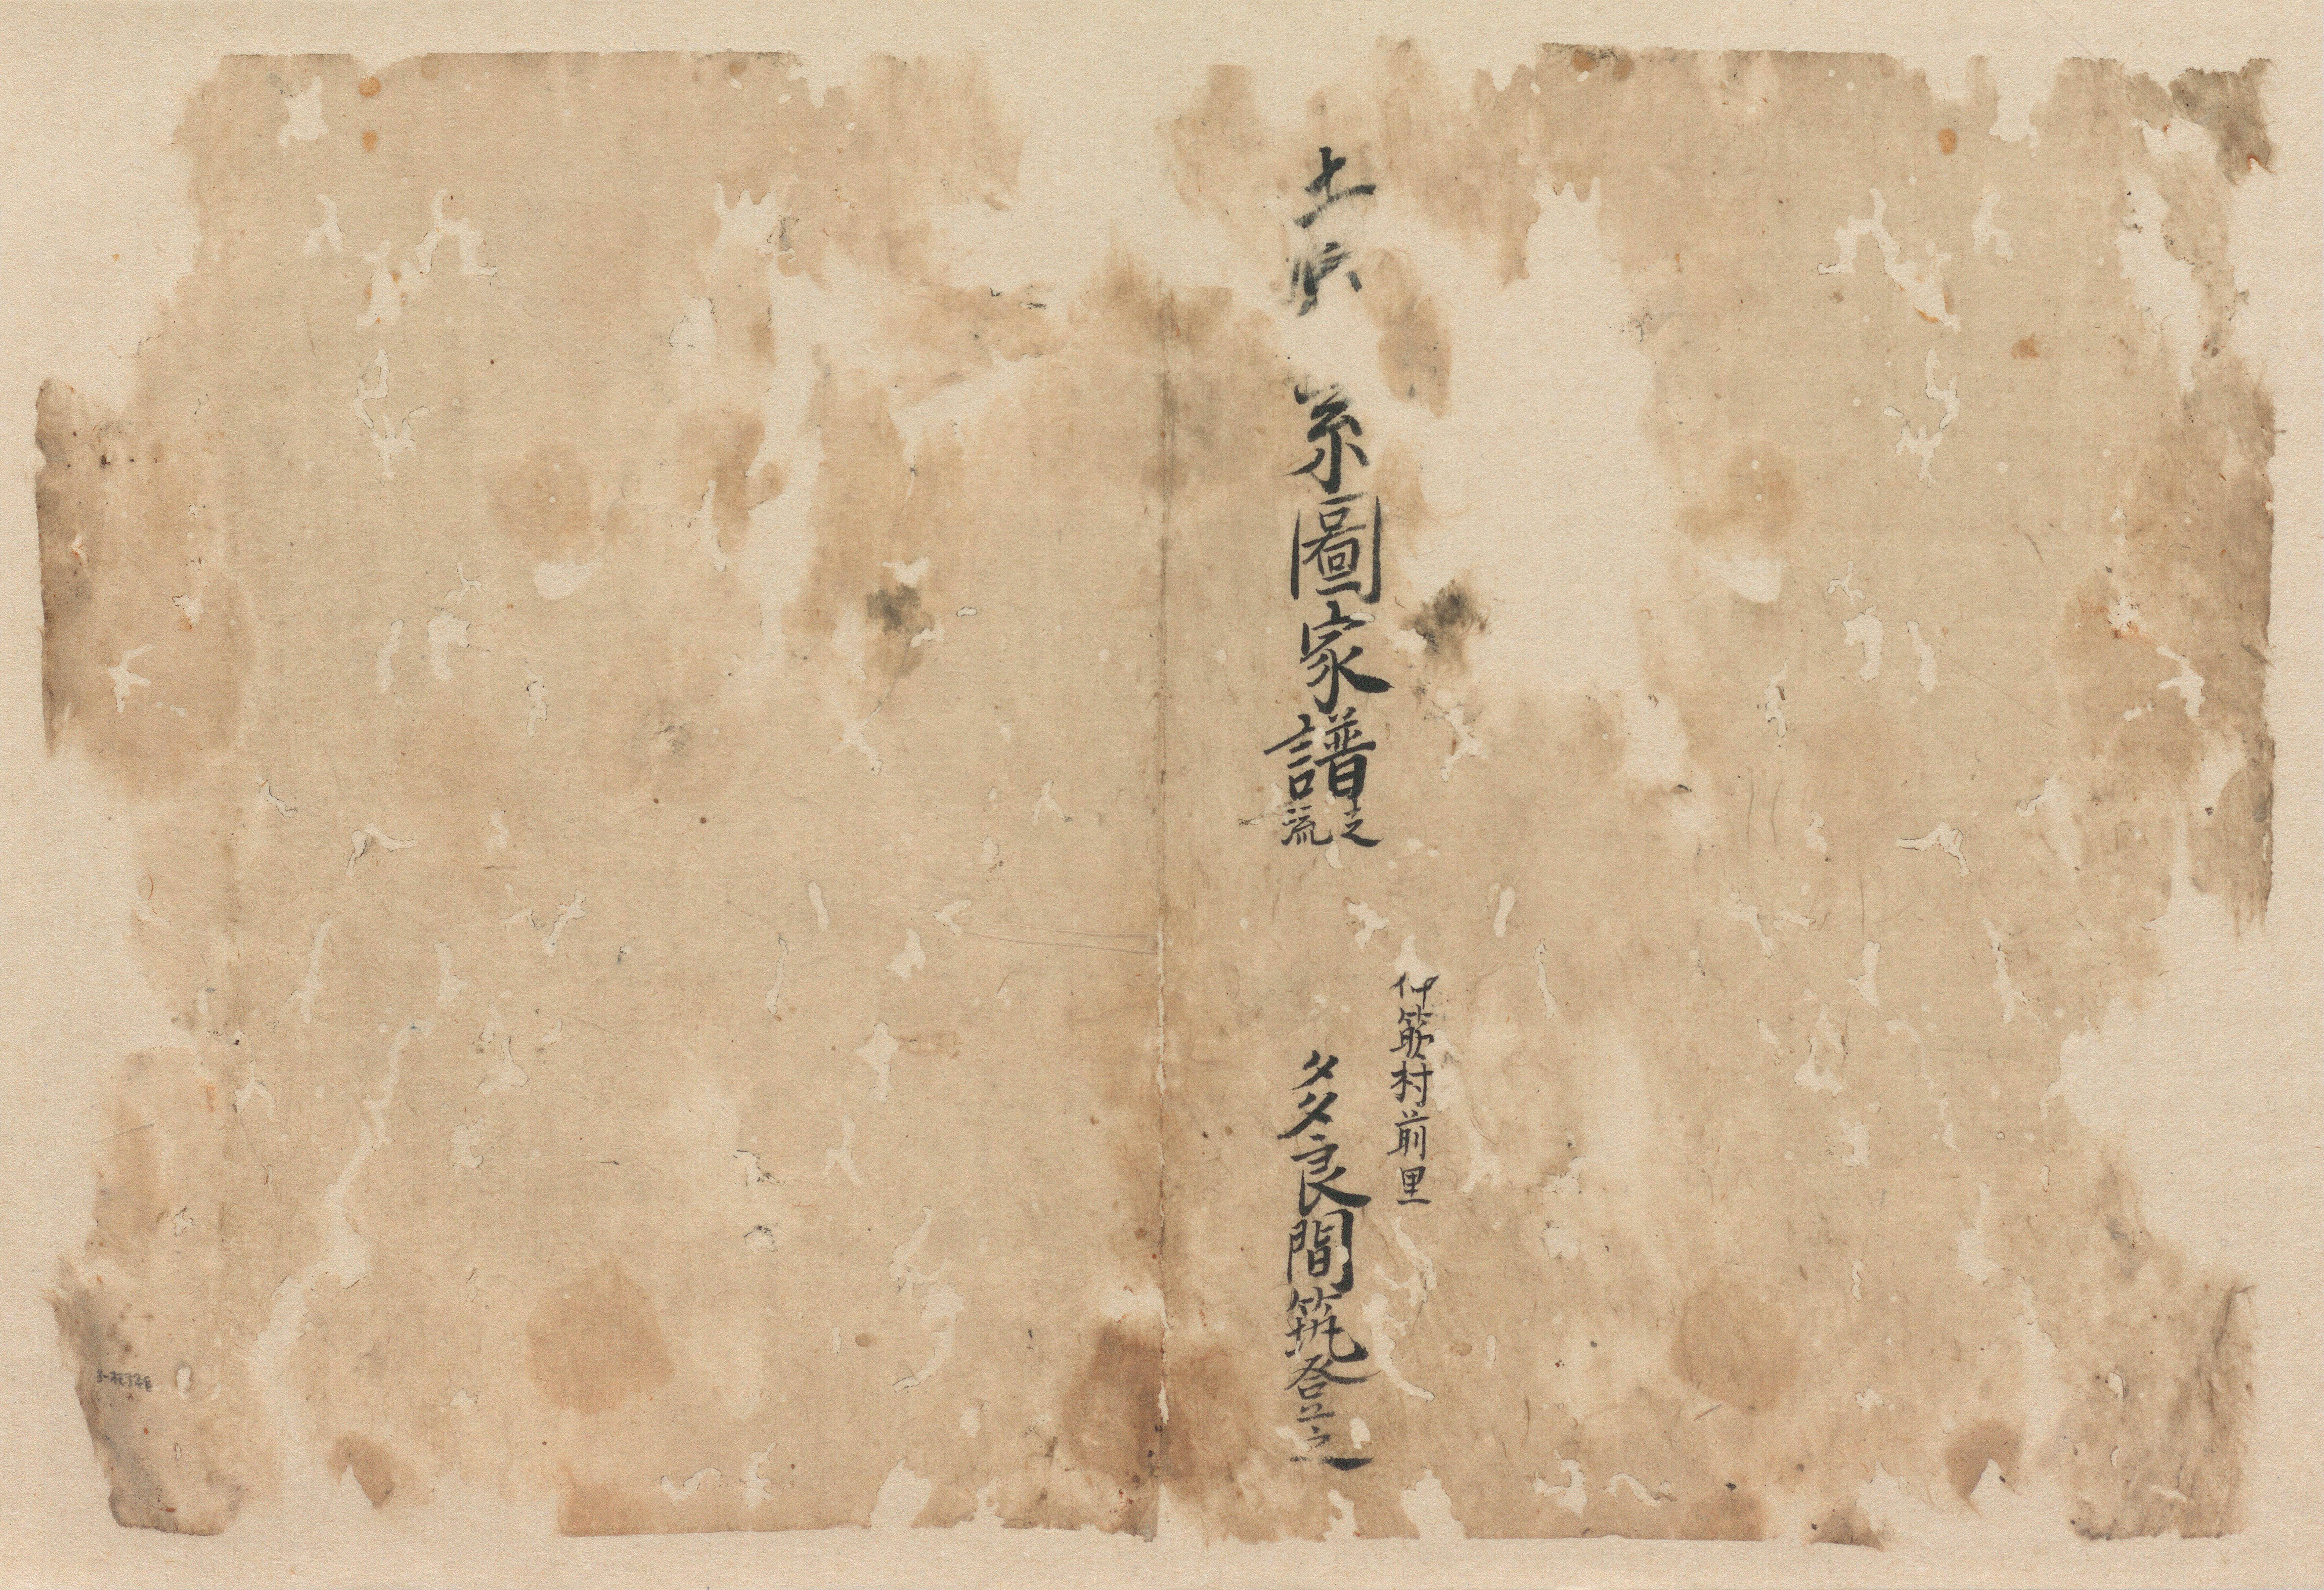 土原 系圖家譜支流
仲筋村前里
多良間筑登之